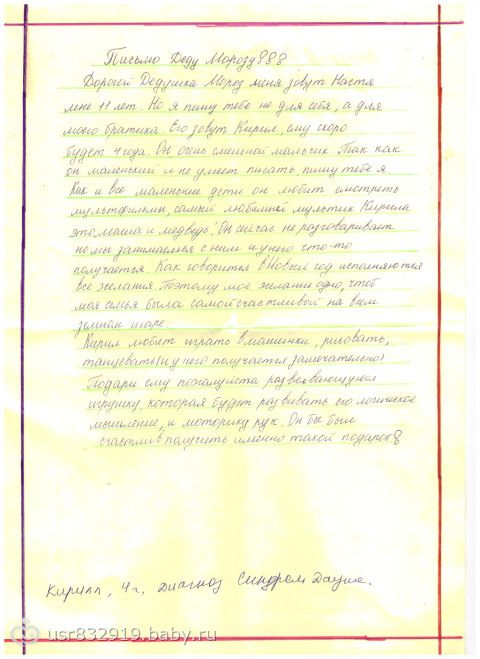 Письмо Деду Морозу!!!
Дорогой Дедушка Мороз меня зовут Настя
мне 11 лет. Но я пишу тебе не для себя, а для
моего братика. Его зовут Кирил, ему скоро
будет 4 года. Он очень смешной мальчик. Так как
он маленький и не умеет писать, пишу тебе я.
Как и все маленькие дети он любит смотреть
мультфильмы, самый любимый мультик Кирила
это маша и медведь. Он сейчас не разговаривает
но мы занимаемся с ним и у него что-то
получается. Как говорится в Новый год исполняются
все желания. Поэтому мое желание одно, чтоб
моя семья была самой счастливой на всем
земном шаре.
Кирил любит играть в машинки, рисовать,
танцевать(и у него получается замечательно)
Подари ему пожалуйста развевающую
игрушку, которая будет развивать его логическое
мышление, и моторику рук. Он бы был
счастлив получить именно такой подарок!
Кирилл, 4 г, Диагноз Синдром Дауна.
usr832919.baby.ru